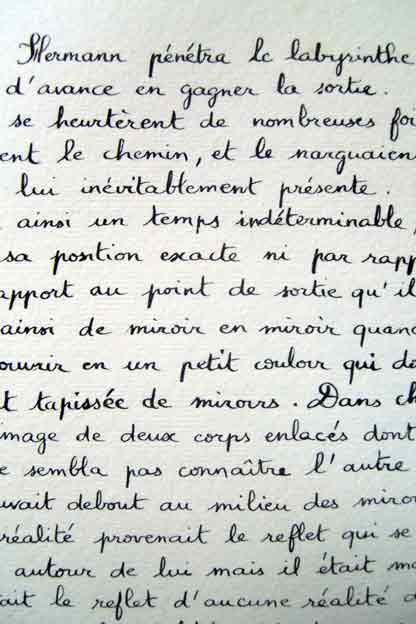 Hermann pénétra le labyrinthe
d'avance en gagner la sortie.
se heurtèrent de nombreuses foi
ent le chemin, et le narguaien
lui inévitablement présente.
ainsi un temps indéterminable,
sa position exacte ni par rapp
apport au point de sortie qu'il
ainsi de miroir en miroir quand
ouvrir en un petit couloir qui d
t tapissée de miroirs. Dans ch
image de deux corps enlacés dont
e sembla pas connaître l'autre
uvait debout au milieu des miro
réalité provenait le reflet qui se
autour de lui mais il était ma
ait le reflet d'aucune réalité d